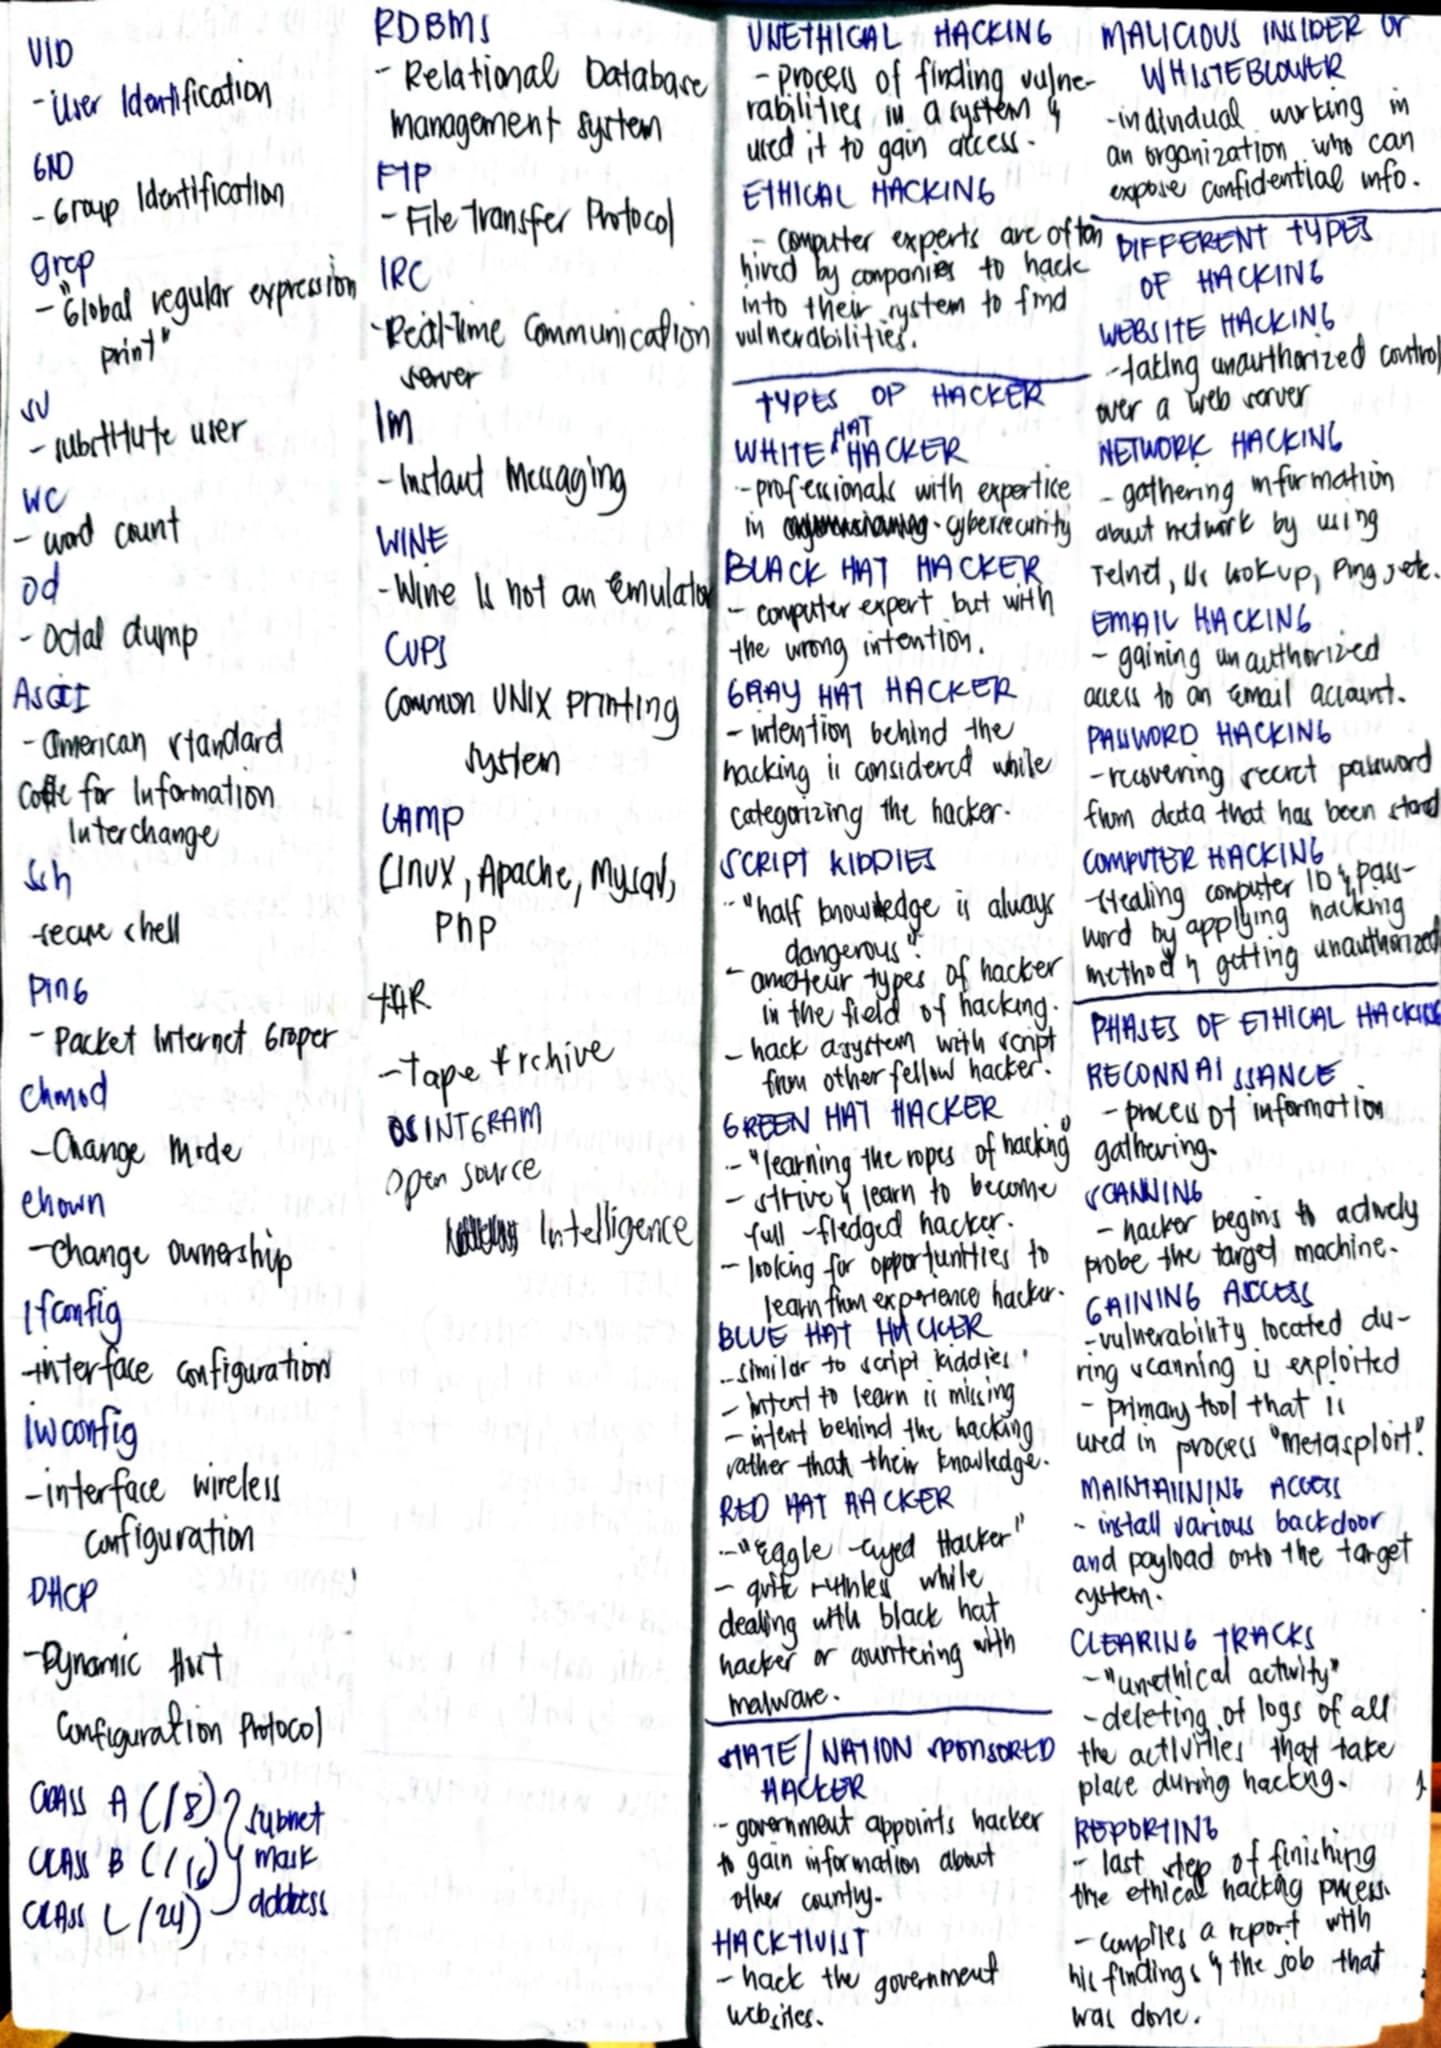 UID
- User Identification
GND
- Group Identification
grep
- "Global regular expression
print"
su
- substitute user
WC
- word count
od
- Octal dump
ASCII
- American standard
Code for Information
Interchange
Ssh
- secure shell
PING
- Packet Internet Groper
chmod
- Change Mode
chown
- Change ownership
Ifconfig
- interface configuration
Iwconfig
- interface wireless
Configuration
DHCP
- Dynamic Host
Configuration Protocol
CLASS A (/8) } subnet
CLASS B (/16) mask
CLASS C (/24) address
RDBMS
- Relational Database
management system
FTP
- File Transfer Protocol
IRC
- Real-Time Communication
server
Im
- Instant Messaging
WINE
- Wine Is not an Emulator
CUPS
Common UNIX Printing
System
LAMP
LINUX, Apache, MySql,
PHP
TAR
- Tape Archive
OSINTGRAM
Open source
Intelligence
UNETHICAL HACKING
- process of finding vulne-
rabilities in a system &
used it to gain access.
ETHICAL HACKING
- computer experts are often
hired by companies to hack
into their system to find
vulnerabilities.
TYPES OF HACKER
WHITE HAT HACKER
- professionals with expertice
in cybersecurity
BLACK HAT HACKER
- computer expert but with
the wrong intention.
GRAY HAT HACKER
- intention behind the
hacking is considered while
categorizing the hacker.
SCRIPT KIDDIES
- "half knowledge is always
dangerous".
- amateur types of hacker
in the field of hacking.
- hack a system with script
from other fellow hacker.
GREEN HAT HACKER
- "learning the ropes of hacking"
- strive & learn to become
full-fledged hacker.
- looking for opportunities to
learn from experience hacker.
BLUE HAT HACKER
- similar to script kiddies
- intent to learn is missing
- intent behind the hacking
rather than their knowledge.
RED HAT HACKER
- "Eggle-Eyed Hacker"
- quite ruthles while
dealing with black hat
hacker or countering with
malware.
STATE/NATION SPONSORED
HACKER
- government appoints hacker
to gain information about
other country.
HACKTIVIST
- hack the government
websites.
MALICIOUS INSIDER or
WHISTEBLOWER
- individual working in
an organization who can
expose confidential info.
DIFFERENT TYPES
OF HACKING
WEBSITE HACKING
- taking unauthorized control
over a web server
NETWORK HACKING
- gathering information
about network by using
Telnet, Ns lookup, Ping, etc.
EMAIL HACKING
- gaining unauthorized
access to an email account.
PASSWORD HACKING
- recovering secret password
from data that has been stored
COMPUTER HACKING
- stealing computer ID & pass-
word by applying hacking
method & getting unauthorized
PHASES OF ETHICAL HACKING
RECONNAISSANCE
- process of information
gathering.
SCANNING
- hacker begins to actively
probe the target machine.
GAINING ACCESS
- vulnerability located du-
ring scanning is exploited
- primary tool that is
used in process "metasploit".
MAINTAINING ACCESS
- install various backdoor
and payload onto the target
system.
CLEARING TRACKS
- "unethical activity"
- deleting of logs of all
the activities that take
place during hacking.
REPORTING
- last step of finishing
the ethical hacking process.
- compiles a report with
his findings & the job that
was done.